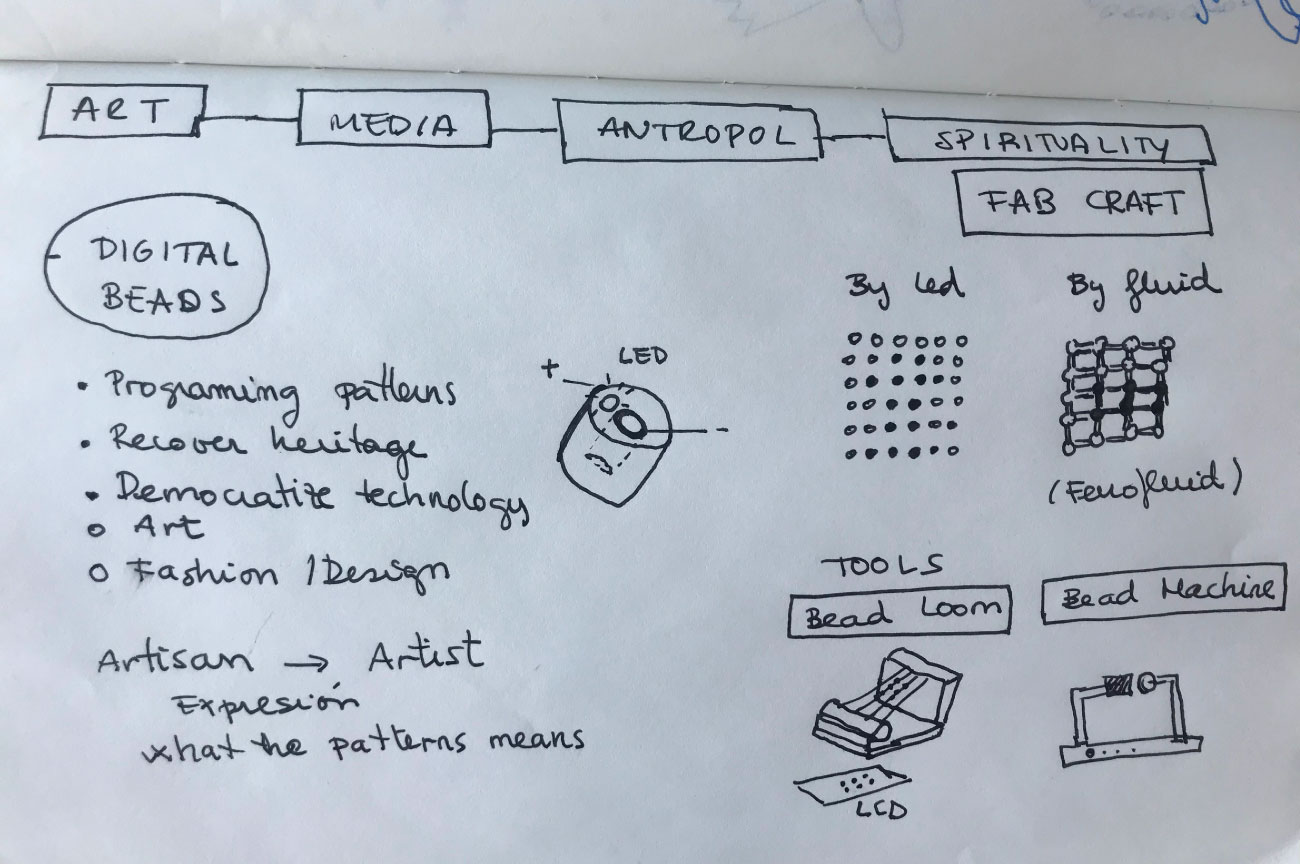 ART
MEDIA
ANTROPOL
SPIRITUALITY
FAB CRAFT
DIGITAL
BEADS
• Programing patterns
• Recover heritage
• Democratize technology
○ Art
○ Fashion / Design
Artisan → Artist
Expresión
what the patterns means
+ LED -
By Led
By fluid
(Ferrofluid)
TOOLS
Bead Loom
Bead Machine
LCD